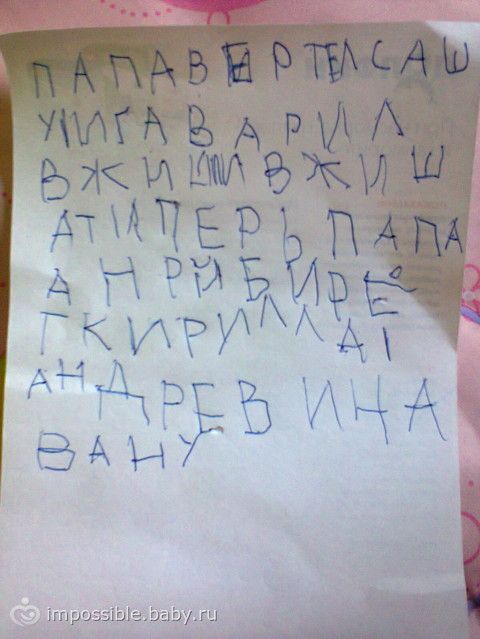 ПАПАВЕРТЕЛСАШ
УИГАВАРИЛ
ВЖИШИВЖИШ
АТІАПЕРЬПАПА
АНРЙБИРЕ
ТКИРИЛЛАІ
АНДРЕВИНА
ВАНУ
impossible.baby.ru